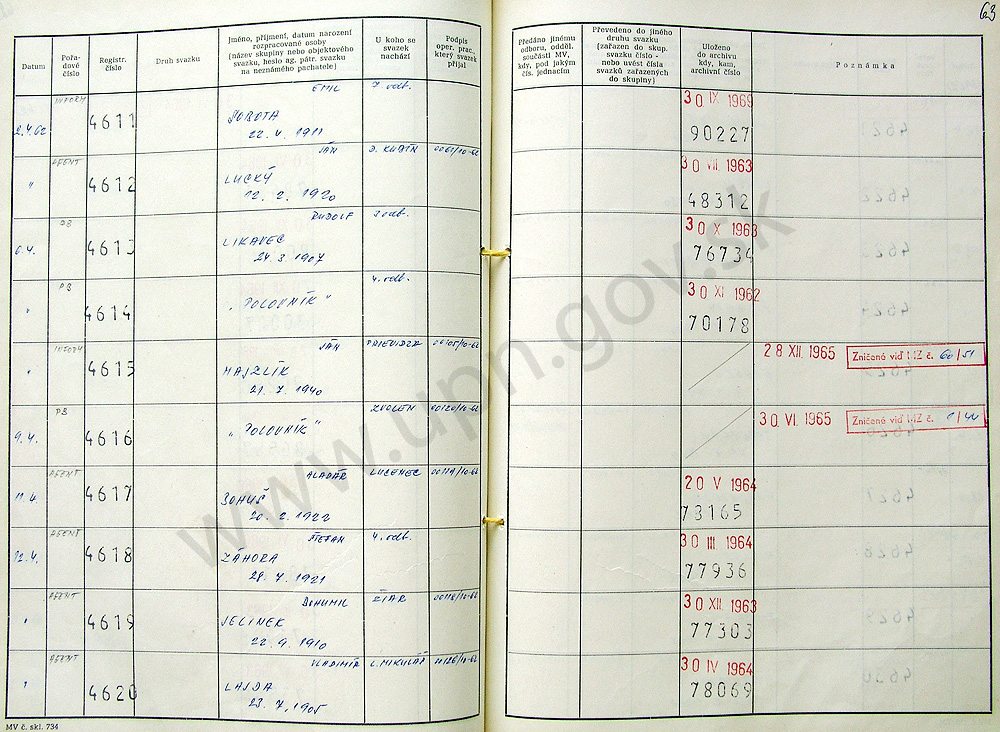 63
Datum
Pořa-
dové
číslo
Registr.
číslo
Druh svazku
Jméno, příjmení, datum narození
rozpracované osoby
(název skupiny nebo objektového
svazku, heslo ag. pátr. svazku
na neznámého pachatele)
U koho se
svazek
nachází
Podpis
oper. prac.,
který svazek
přijal
Předáno jinému
odboru, odděl.
součásti MV,
kdy, pod jakým
čís. jednacím
Převedeno do jiného
druhu svazku
(zařazen do skup.
svazku číslo -
nebo uvést čísla
svazků zařazených
do skupiny)
Uloženo
do archivu
kdy, kam,
archivní číslo
Poznámka
INFORM EMIL 7 odb. 30 IX 1969
2.4.62 4611 SOBOTA 90227
22. V. 1911
AGENT JÁN D. KUBÍN 0061/10-62 30 VII. 1963
" 4612 LUCKÝ 48312
12. 2. 1920
PB RUDOLF 3 odb. 30 X 1963
6.4. 4613 LIKAVEC 76734
24 3. 1907
PB 4. odb. 30 XI 1962
" 4614 „POLOVNÍK" 70178
INFORM JÁN PRIEVIDZA 00105/10-62 28 XII. 1965 Zničené viď MZ č. 60/51
" 4615 HAJZLÍK
21. 7. 1940
PB ZVOLEN 00120/10-62 30. VI. 1965 Zničené viď MZ č.
9.4. 4616 „POLOVNÍK"
AGENT ALADÁR LUČENEC 00119/10-62 20 V 1964
11.4. 4617 BOHUŠ 73165
20. 2. 1922
AGENT ŠTEFAN 4. odb. 30 III. 1964
12.4. 4618 ZÁHORA 77936
28. 7. 1921
AGENT BOHUMIL ŽIAR 00118/10-62 30 XII. 1963
" 4619 JELINEK 77303
22. 9. 1910
AGENT VLADIMÍR L. MIKULÁŠ 00126/10-62 30 IV 1964
" 4620 LAJDA 78069
23. 7. 1905
MV č. skl. 734
www.upn.gov.sk